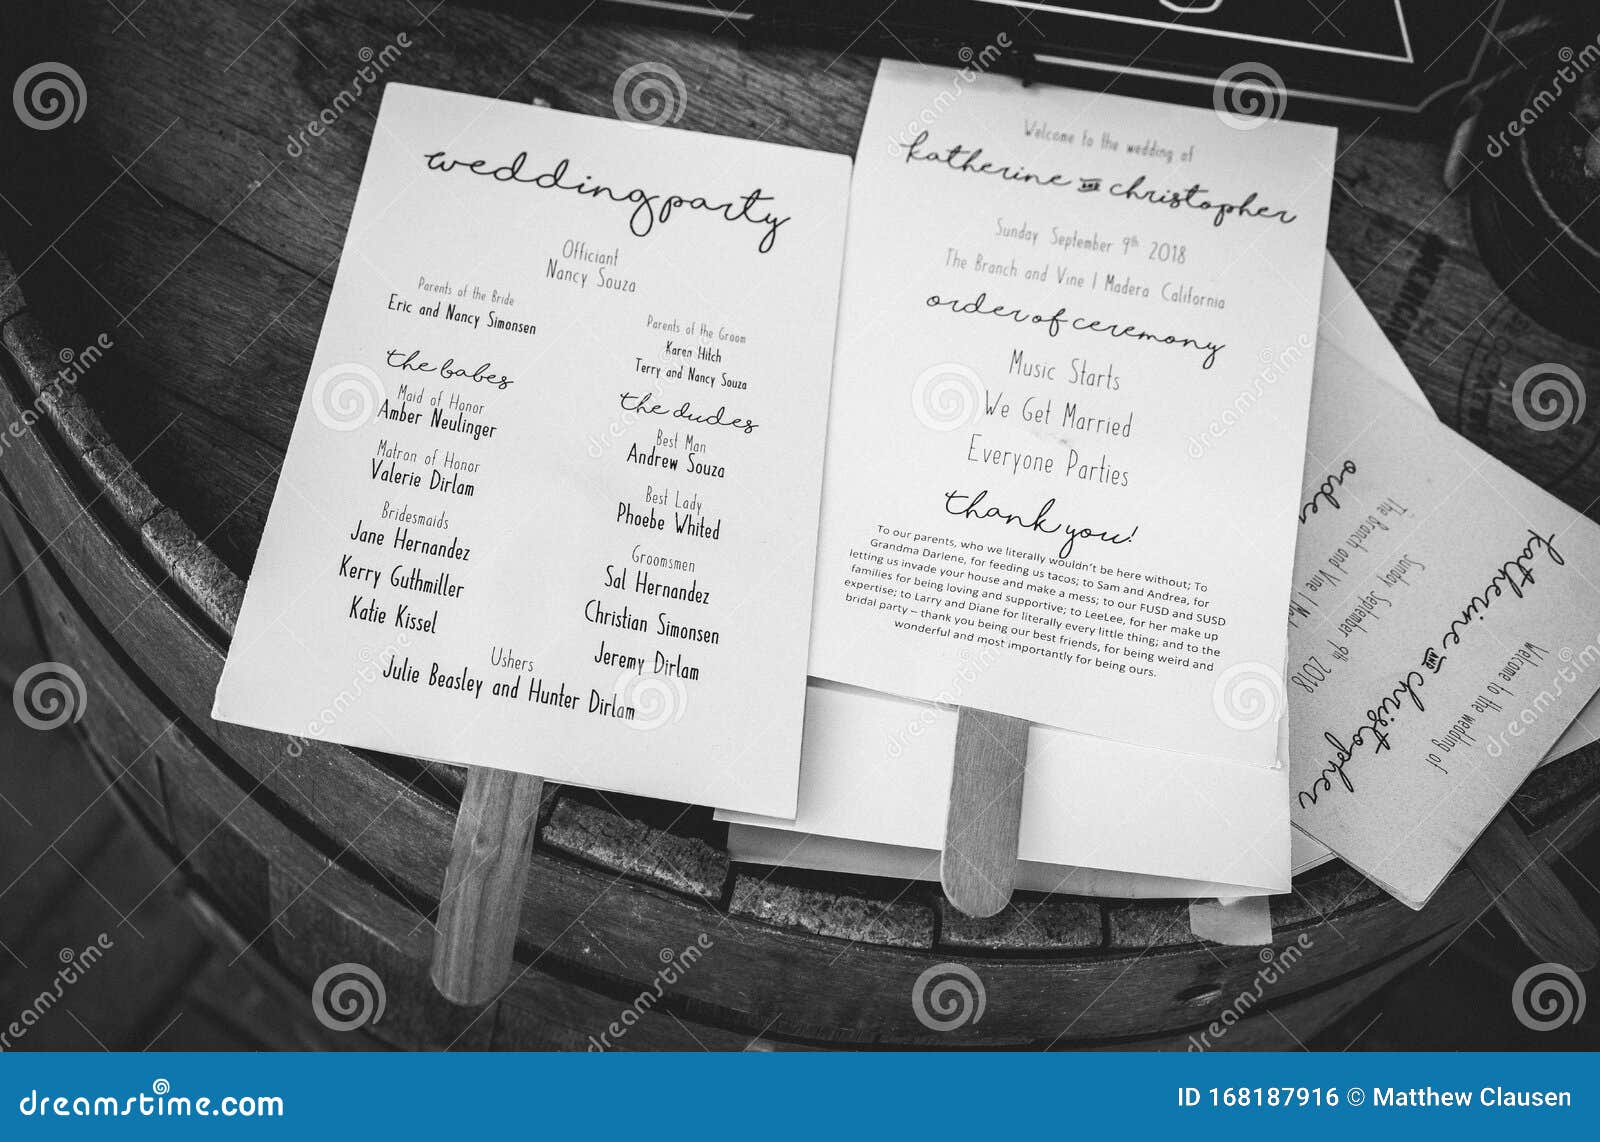 wedding party
Officiant
Nancy Souza
Parents of the Bride
Eric and Nancy Simonsen
the babes
Maid of Honor
Amber Neulinger
Matron of Honor
Valerie Dirlam
Bridesmaids
Jane Hernandez
Kerry Guthmiller
Katie Kissel
Parents of the Groom
Karen Hitch
Terry and Nancy Souza
the dudes
Best Man
Andrew Souza
Best Lady
Phoebe Whited
Groomsmen
Sal Hernandez
Christian Simonsen
Jeremy Dirlam
Ushers
Julie Beasley and Hunter Dirlam
Welcome to the wedding of
katherine and christopher
Sunday September 9th 2018
The Branch and Vine | Madera California
order of ceremony
Music Starts
We Get Married
Everyone Parties
thank you!
To our parents, who we literally wouldn't be here without; To
Grandma Darlene, for feeding us tacos; to Sam and Andrea, for
letting us invade your house and make a mess; to our FUSD and SUSD
families for being loving and supportive; to LeeLee, for her make up
expertise; to Larry and Diane for literally every little thing; and to the
bridal party – thank you being our best friends, for being weird and
wonderful and most importantly for being ours.
Welcome to the wedding of
katherine and christopher
Sunday September 9th 2018
The Branch and Vine |
order
dreamstime.com
ID 168187916 © Matthew Clausen